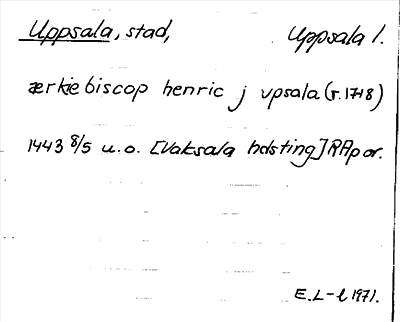 Uppsala, stad, Uppsala 1.
ærkiebiscop henric j vpsala (r. 17+8)
1443 8/5 u.o. [Vaksala hdsting] RAp or.
E.L-l 1971.